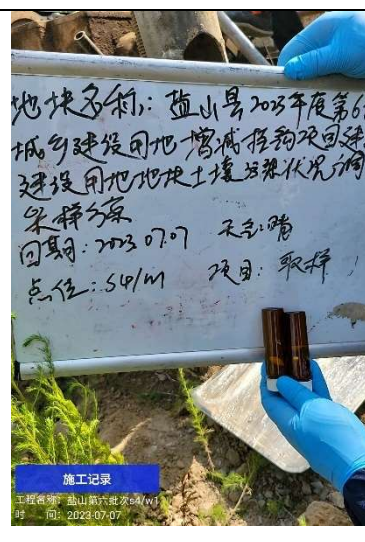 地块名称：盐山县2023年度第6
城乡建设用地增减挂钩项目建
建设用地地块土壤污染状况调
采样方案
日期：2023 07.07 天气：晴
点位：S4/1m 项目：取样
施工记录
工程名称：盐山第六批次s4/w1
时 间：2023-07-07